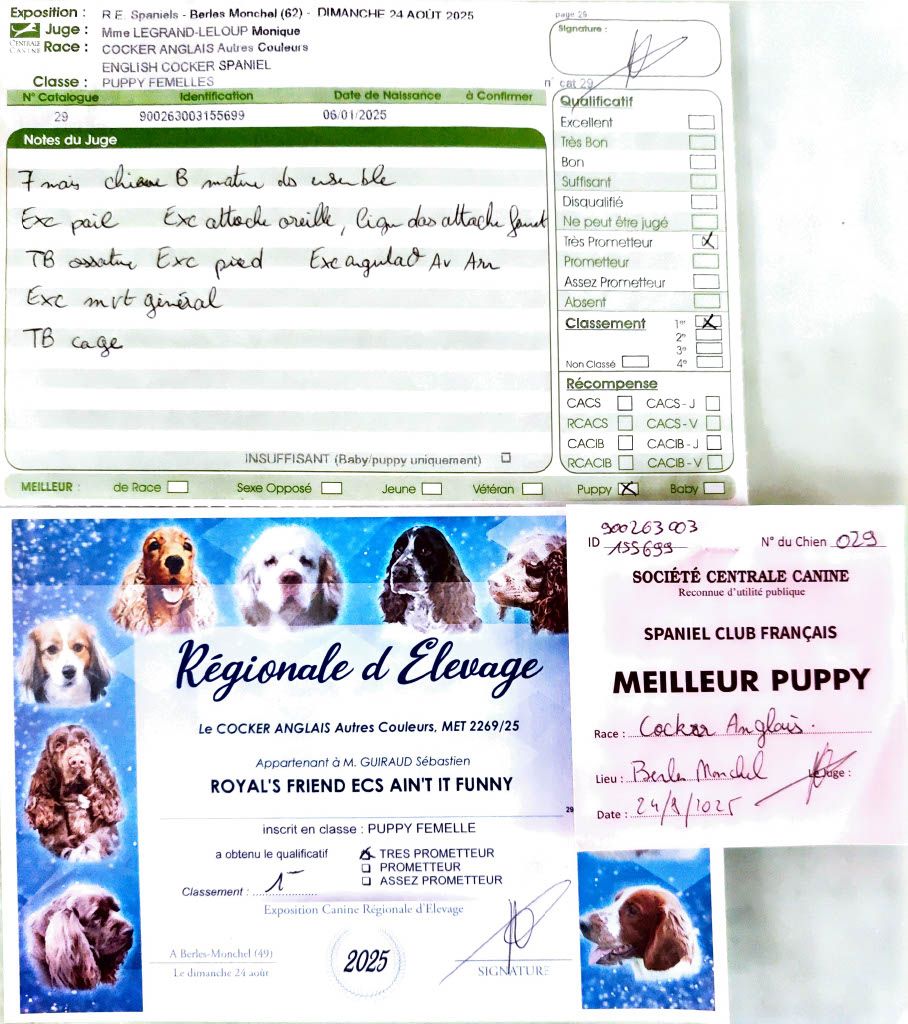 Exposition : R.E. Spaniels - Berles Monchel (62) - DIMANCHE 24 AOÛT 2025
page 29
Juge : Mme LEGRAND-LELOUP Monique
Signature :
CENTRALE CANINE
Race : COCKER ANGLAIS Autres Couleurs
ENGLISH COCKER SPANIEL
Classe : PUPPY FEMELLES
n° cat 29
N° Catalogue Identification Date de Naissance à Confirmer
29 900263003155699 06/01/2025
Notes du Juge
7 mois chienne B mature ds ensemble
Exc poil Exc attache oreille, ligne dos attache fouet
TB ossature Exc pied Exc angulat° Av Arr
Exc mvt général
TB cage
INSUFFISANT (Baby/puppy uniquement)
Qualificatif
Excellent
Très Bon
Bon
Suffisant
Disqualifié
Ne peut être jugé
Très Prometteur X
Prometteur
Assez Prometteur
Absent
Classement 1er X
2e
3e
Non Classé 4e
Récompense
CACS CACS - J
RCACS CACS - V
CACIB CACIB - J
RCACIB CACIB - V
MEILLEUR : de Race Sexe Opposé Jeune Vétéran Puppy X Baby
Régionale d Elevage
Le COCKER ANGLAIS Autres Couleurs, MET 2269/25
Appartenant à M. GUIRAUD Sébastien
ROYAL'S FRIEND ECS AIN'T IT FUNNY
29
inscrit en classe : PUPPY FEMELLE
a obtenu le qualificatif X TRES PROMETTEUR
PROMETTEUR
ASSEZ PROMETTEUR
Classement : 1
Exposition Canine Régionale d'Elevage
A Berles-Monchel (49)
Le dimanche 24 août
2025
SIGNATURE
900263003
ID 155699 N° du Chien 029
SOCIÉTÉ CENTRALE CANINE
Reconnue d'utilité publique
SPANIEL CLUB FRANÇAIS
MEILLEUR PUPPY
Race : Cocker Anglais.
Lieu : Berles Monchel Le Juge :
Date : 24/8/2025